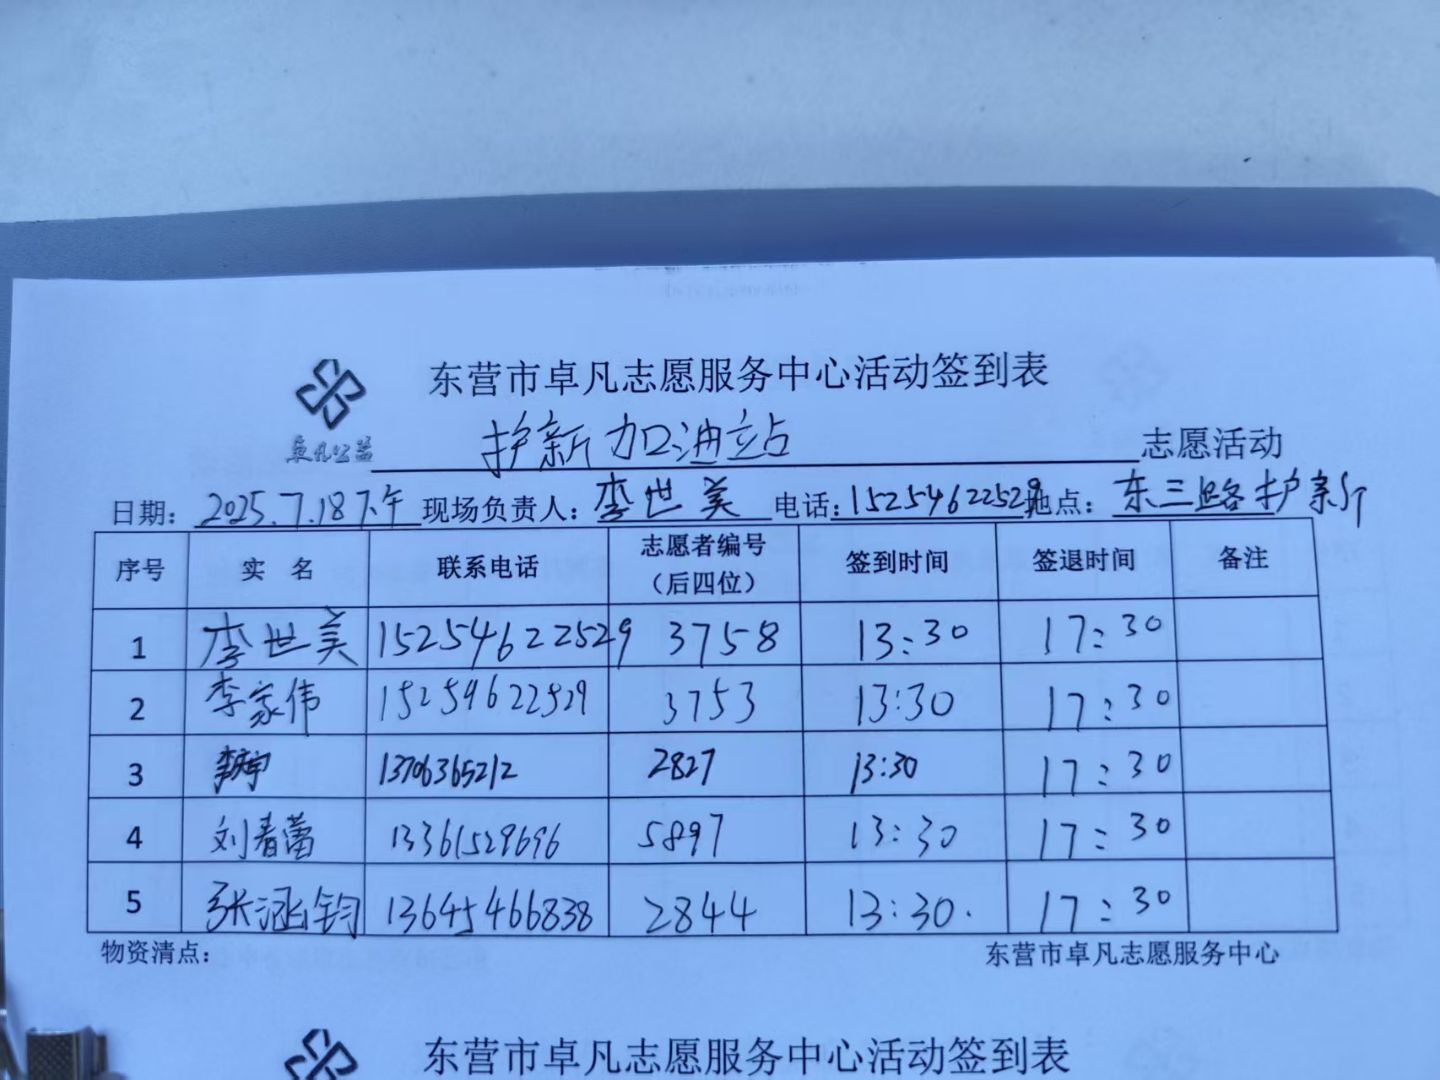 东营市卓凡志愿服务中心活动签到表
卓凡公益 护新加油站 志愿活动
日期：2025.7.18下午 现场负责人：李世美 电话：15254622529 地点：东三路护新
序号 实 名 联系电话 志愿者编号（后四位） 签到时间 签退时间 备注
1 李世美 15254622529 3758 13:30 17:30
2 李家伟 15254622529 3753 13:30 17:30
3 13706365212 2827 13:30 17:30
4 刘春蕾 13361529696 5897 13:30 17:30
5 张涵钧 13645466838 2844 13:30. 17:30
物资清点： 东营市卓凡志愿服务中心
东营市卓凡志愿服务中心活动签到表